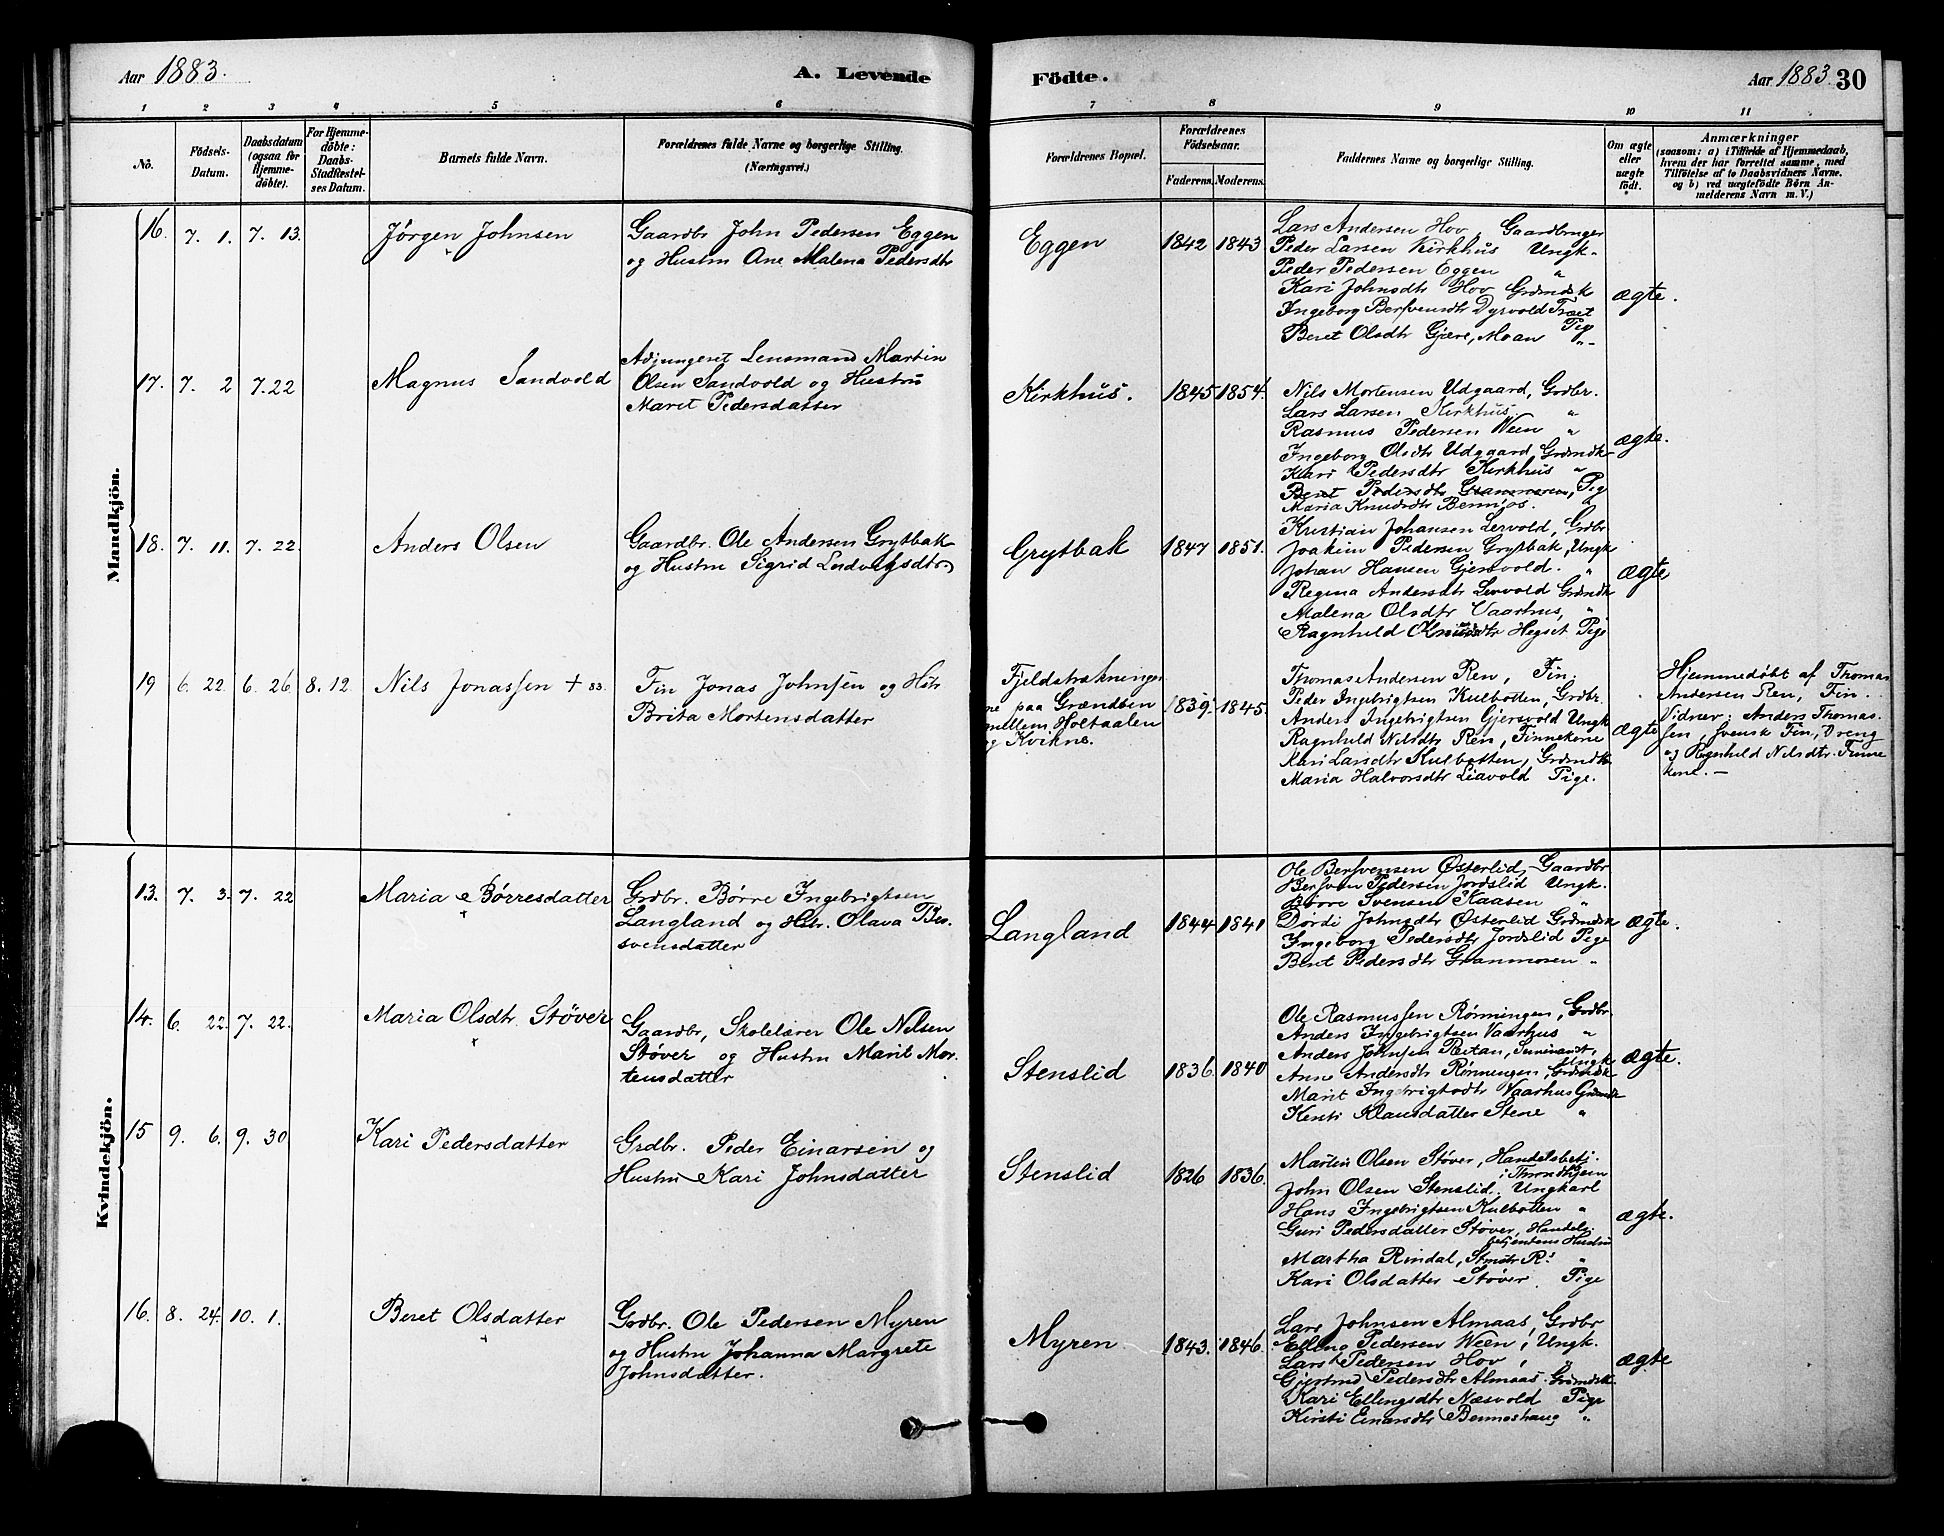 Aar 1883.
A. Levende
Födte.
Aar 1883. 30
1 2 3 4 5 6 7 8 9 10 11
Nö.
Födsels-
Datum.
Daabsdatum
(ogsaa for
Hjemme-
döbte).
For Hjemme-
döbte:
Daabs-
Stadfæstel-
ses Datum.
Barnets fulde Navn.
Forældrenes fulde Navne og borgerlige Stilling.
(Næringsvei.)
Forældrenes Bopæl.
Forældrenes
Födselsaar.
Faderens. Moderens.
Faddernes Navne og borgerlige Stilling.
Om ægte
eller
uægte
födt.
Anmærkninger
(saasom: a) i Tilfælde af Hjemmedaab,
hvem der har forrettet samme, med
Tilföielse af to Daabsvidners Navne.
og b) ved uægtefödte Börn An-
melderens Navn m. V.)
Mandkjön.
16. 7. 1. 7. 13.
Jørgen Johnsen
Gaardbr John Pedersen Eggen
og Hustru Ane Malena Pedersdtr
Eggen
1842 1843
Lars Andersen Hov, Gaardbruger
Peder Larsen Kirkhus Ungk.
Peder Pedersen Eggen "
Kari Johnsdtr Hov Grdmdsk
Ingeborg Bersvensdtr Dyrvold
Beret Olsdtr Gjære, Moan Pig
ægte.
17. 7. 2 7. 22
Magnus Sandvold
Adjungeret Lensmand Martin
Olsen Sandvold og Hustru
Marit Pedersdatter
Kirkhus.
1845 1854.
Nils Mortensen Udgaard, Grdbr.
Lars Larsen Kirkhus. "
Rasmus Pedersen Ween "
Ingeborg Olsdtr Udgaard, Grdmdk
Kari Pedersdtr Kirkhus "
Beret Pedersdtr Granmoren, Pig
Maria Knudsdtr
ægte.
18. 7. 11. 7. 22.
Anders Olsen
Gaardbr. Ole Andersen Grytbak
og Hustru Sigrid Ludvigsdtr
Grytbak
1847 1851.
Kristian Johansen Lervold, Grdbr
Joakim Pedersen Grytbak, Ungk
Johan Hansen Gjersvold. "
Regina Andersdtr Lervold Grdmdk
Malena Olsdtr Vaarhus, "
Ragnhild Knudsdtr Hegset Pige
ægte
19 6. 22. 6. 26. 8. 12.
Nils Jonassen + 83.
Fin Jonas Johnsen og Hstr
Brita Mortensdatter
Fjeldstrækninger
ne paa Grændsen
mellem Holtaalen
og Kvikne.
1839. 1845.
Thomas Andersen Ren, Fin
Peder Ingebrigtsen Kulbotten, Grdbr
Anders Ingebrigtsen Gjersvold Ungk
Ragnhild Nilsdtr Ren, Finnekone
Kari Larsdtr Kulbotten, Grdmdk
Maria Halvorsdtr Liavold Pige.
ægte
Hjemmedøbt af Thomas
Andersen Ren, Fin.
Vidner: Anders Thomas-
sen, svensk Fin, Dreng
og Ragnhild Nilsdtr. Finne
kone. —
Kvindekjön.
13. 7. 3. 7. 22
Maria Børresdatter
Grdbr. Børre Ingebrigtsen
Langland og Hstr. Olava Ber-
svensdatter
Langland
1844 1841
Ole Bersvensen Østerlid, Gaardbr
Bersven Pedersen Jordslid Ungk.
Børre Svensen Kaasen "
Dordi Johnsdtr Østerlid Grdmdsk
Ingeborg Pedersdtr Jordslid Pige
Beret Pedersdtr Granmoren "
ægte.
14. 6. 22. 7. 22.
Maria Olsdtr. Støver
Gaardbr, Skolelærer Ole Nilsen
Støver og Hustru Marit Mor-
tensdatter
Stenslid
1836. 1840
Ole Rasmussen Rønningen, Grdbr.
Anders Ingebrigtsen Vaarhus "
Anders Johnsen Reitan, Seminarist,
Ungk
Ane Andersdtr Rønningen, Grdmdsk
Marit Ingebrigtsdtr Vaarhus Grdmdk
Kersti Klausdatter Stene "
ægte.
15 9. 6. 9. 30
Kari Pedersdatter
Grdbr. Peder Einarsen og
Hustru Kari Johnsdatter
Stenslid
1826 1836.
Martin Olsen Støver, Handelsbetj.
i Throndhjem
John Olsen Stenslid, Ungkarl
Hans Ingebrigtsen Kulbotten "
Guri Pedersdatter Støver, Handels-
betjentens Hustru
Martha Rindal,
Kari Olsdatter Støver. Pige
ægte.
16. 8. 24. 10. 1.
Beret Olsdatter
Grdbr. Ole Pedersen Myren
og Hustru Johanna Margrete
Johnsdatter.
Myren
1843. 1846.
Lars Johnsen Almaas, Grdbr
Elling Pedersen Ween, Ungk.
Lars Pedersen Hov, "
Gjertrud Pedersdtr Almaas. Grdmdsk.
Kari Ellingsdtr Næsvold Pige
Kirsti Einarsdtr Bennoshaug "
ægte